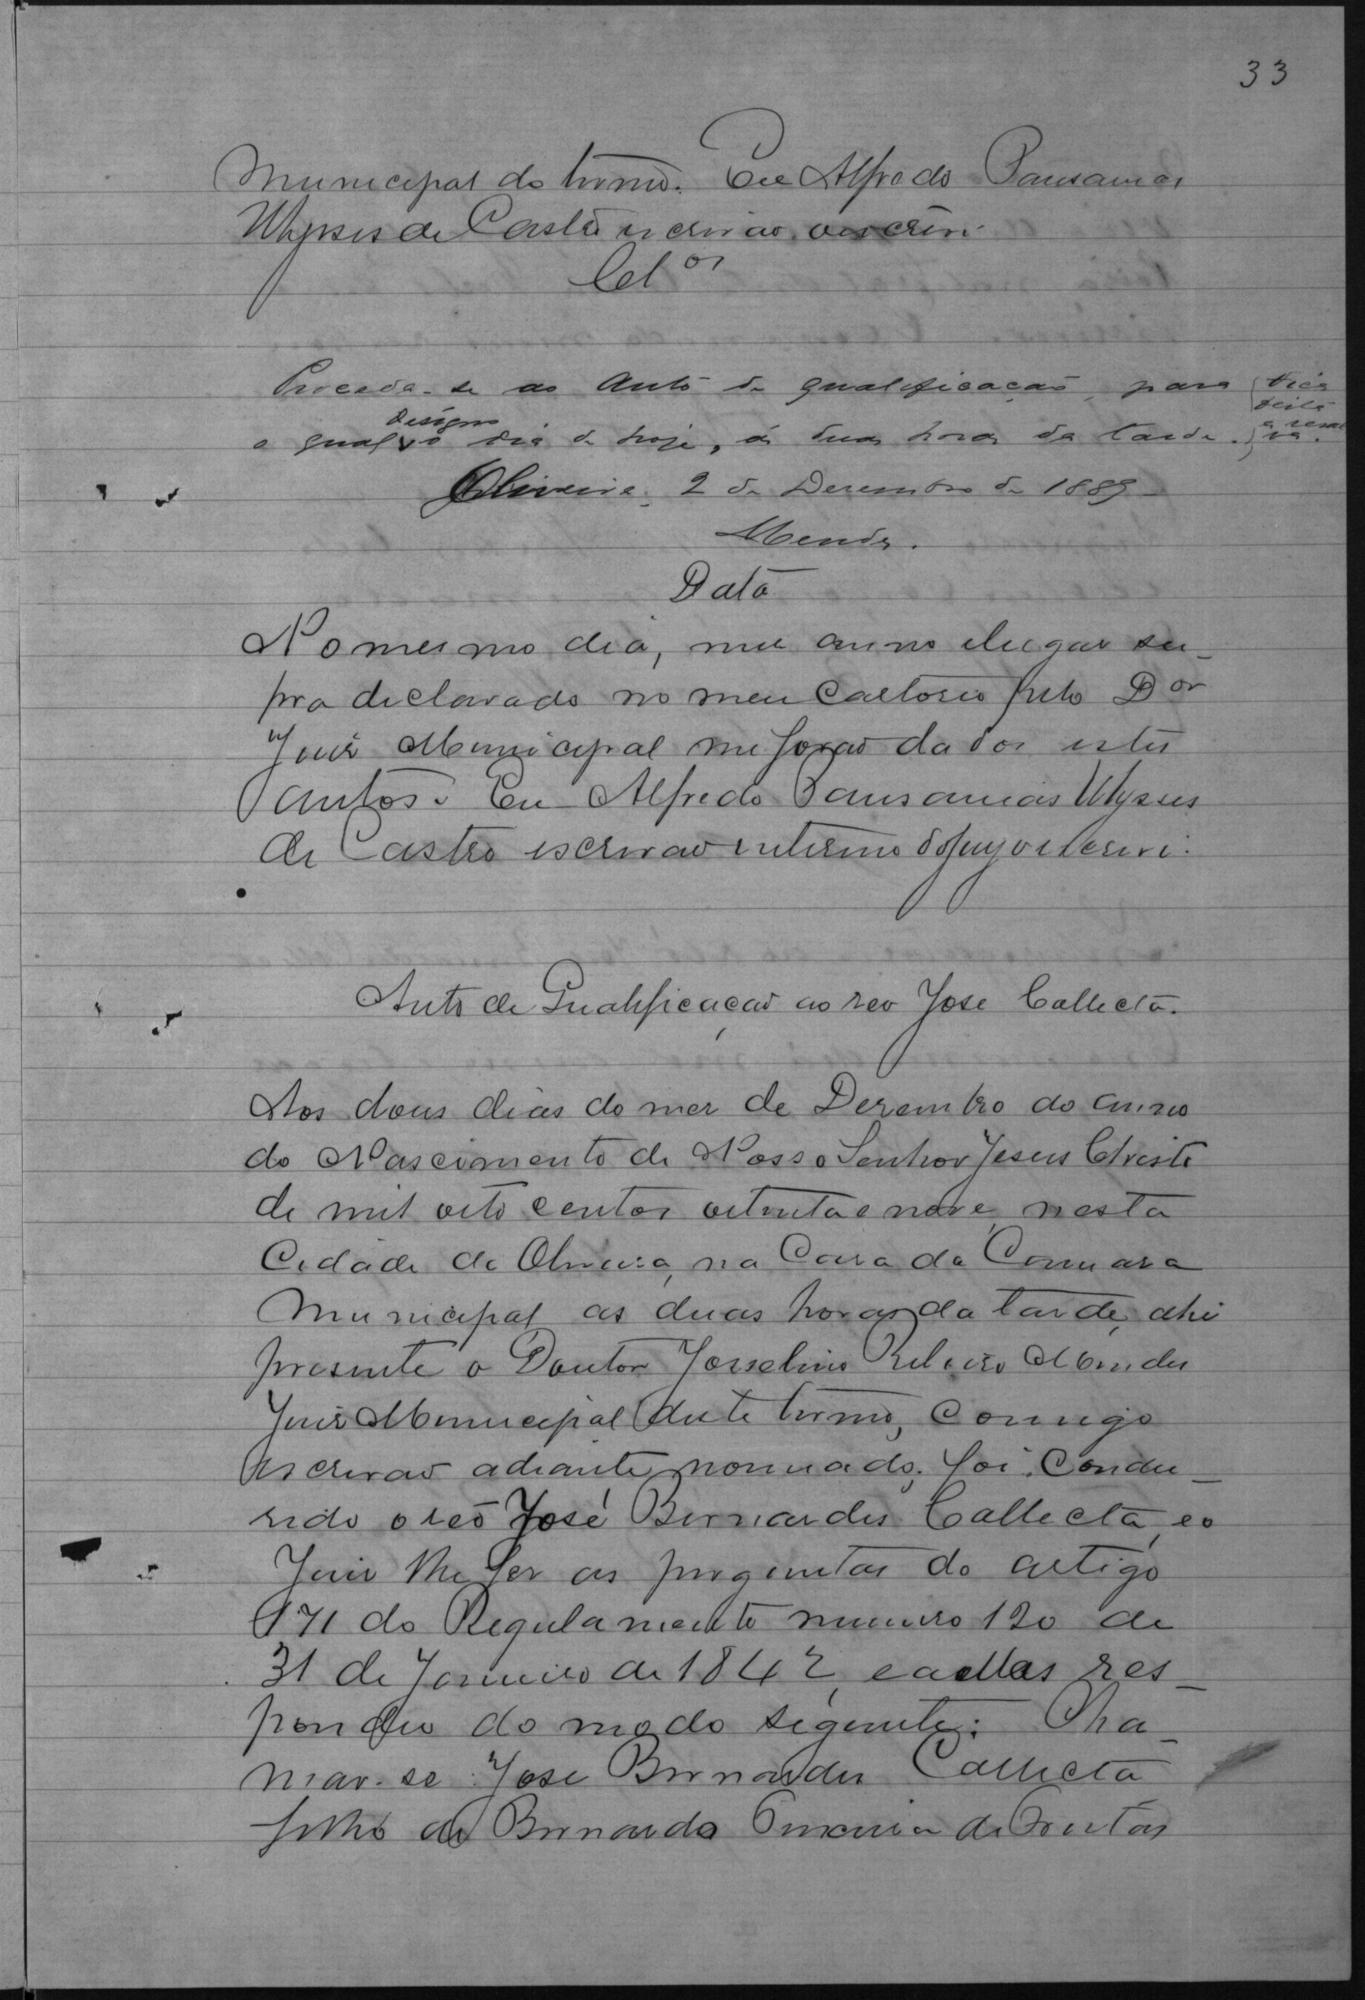 33
Municipal do termo. Eu Alfredo Pausanias
Ulysses de Castro escrivão o escrevi.
Cl.os
Proceda-se ao auto de qualificação, para
o qual designo o dia de hoje, ás duas horas da tarde.
Oliveira, 2 de Dezembro de 1889
Mendes.
Data
No mesmo dia, mez anno e lugar su-
pra declarado no meu Cartorio pelo Dor
Juiz Municipal me forão dados estes
autos. Eu Alfredo Pausanias Ulysses
de Castro escrivão interino do jury o escrevi.
Auto de Qualificação ao reo José Callecta.
Aos dous dias do mez de Dezembro do anno
do Nascimento de Nosso Senhor Jesus Christo
de mil oito centos oitenta e nove, nesta
Cidade de Oliveira, na Casa da Camara
Municipal as duas horas da tarde, ahi
presente o Doutor Josselino Ribeiro Mendes
Juiz Municipal deste termo, comigo
escrivão adiante nomeado, foi condu-
zido o reo José Bernardes Callecta, e o
Juiz lhe fez as preguntas do artigo
171 do Regulamento numero 120 de
31 de Janeiro de 1842, e a ellas res-
pondeu do modo seguinte: Cha-
mar-se José Bernardes Callecta
filho de Bernardo de Freitas